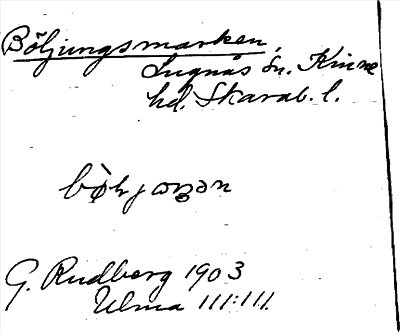 Böljungsmarken,
Lugnås sn. Kinne
hd. Skarab. l.
G. Rudberg 1903
Ulma 111:111.